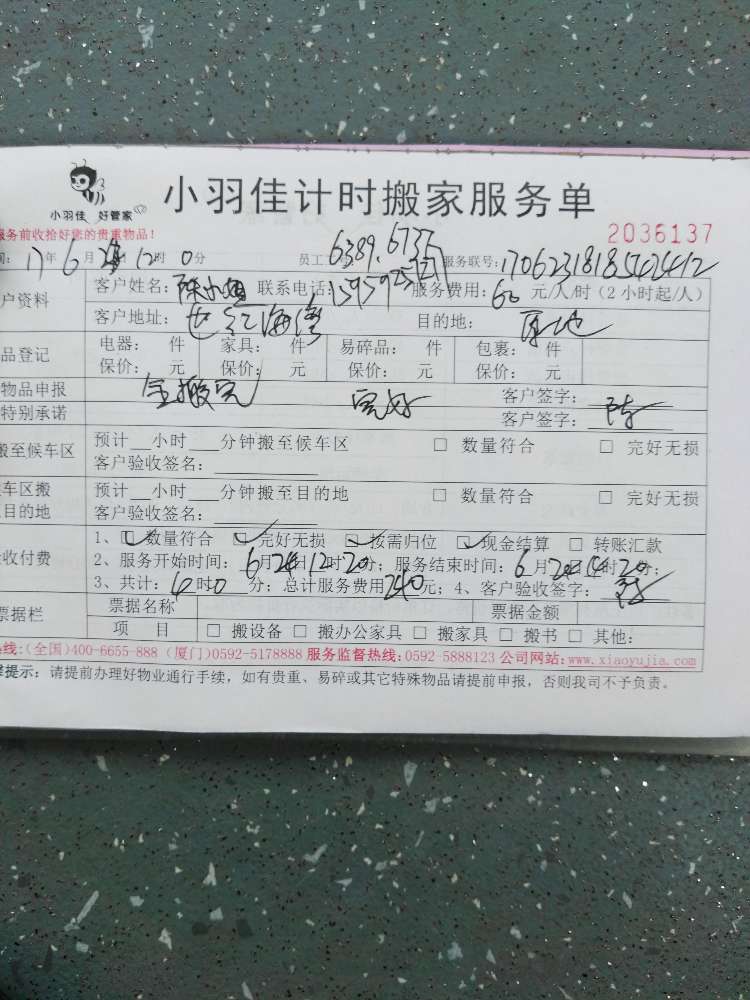 小羽佳 好管家
小羽佳计时搬家服务单
服务前收拾好您的贵重物品！ 2036137
17年6月 12时0分 员工 6389.6737 服务联号：
户资料 客户姓名：陈小姐 联系电话： 服务费用：60元/人/时（2小时起/人）
客户地址： 海湾 目的地：原地
品登记 电器： 件 家具： 件 易碎品： 件 包裹： 件
保价： 元 保价： 元 保价： 元 保价： 元
物品申报 全搬完 完好 客户签字：陈
特别承诺 客户签字：
搬至候车区 预计__小时___分钟搬至候车区 □ 数量符合 □ 完好无损
客户验收签名：
车区搬 预计__小时___分钟搬至目的地 □ 数量符合 □ 完好无损
目的地 客户验收签名：
收付费 1、☑数量符合 ☑完好无损 ☑按需归位 ☑现金结算 □ 转账汇款
2、服务开始时间：6月24日12时20分；服务结束时间：6月24日14时20分；
3、共计：4时0分；总计服务费用240元；4、客户验收签字：
票据栏 票据名称 票据金额
项 目 □ 搬设备 □ 搬办公家具 □ 搬家具 □ 搬书 □ 其他：
线：(全国)400-6655-888（厦门)0592-5178888 服务监督热线：0592-5888123 公司网站：www.xiaoyujia.com
提示：请提前办理好物业通行手续，如有贵重、易碎或其它特殊物品请提前申报，否则我司不予负责。